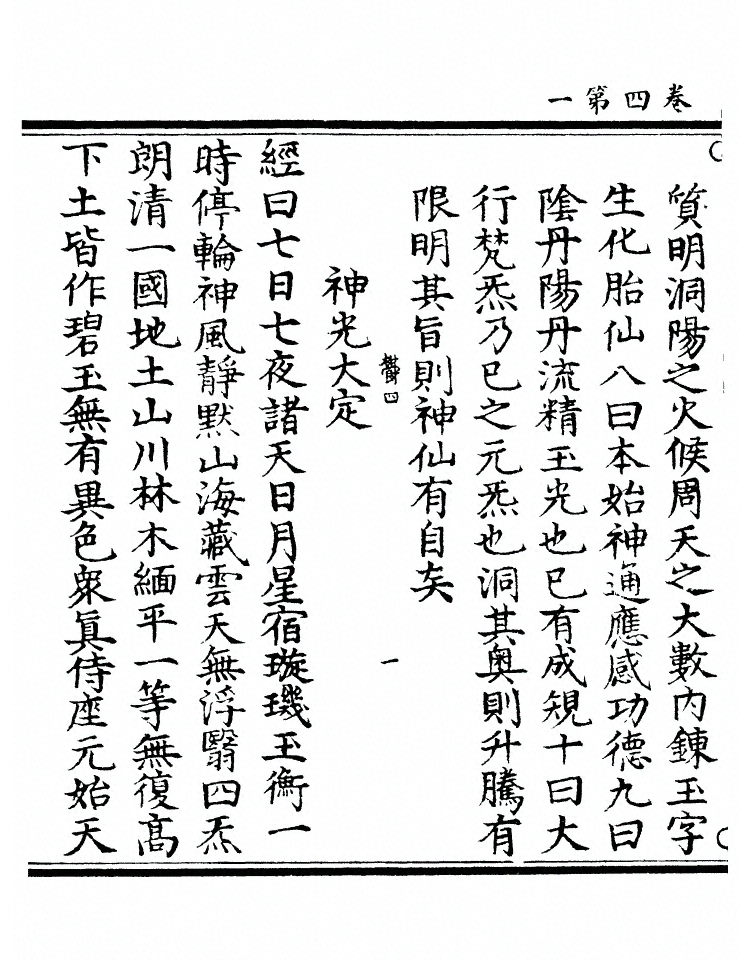 卷四第一
質明洞陽之火候周天之大數内鍊玉字
生化胎仙八曰本始神通應感功德九曰
陰丹陽丹流精玉光也已有成規十曰大
行梵炁乃已之元炁也洞其奥則升騰有
限明其旨則神仙有自矣
四
一
神光大定
經曰七日七夜諸天日月星宿璇璣玉衡一
時停輪神風靜默山海藏雲天無浮翳四炁
朗清一國地土山川林木緬平一等無復髙
下土皆作碧玉無有異色衆眞侍座元始天